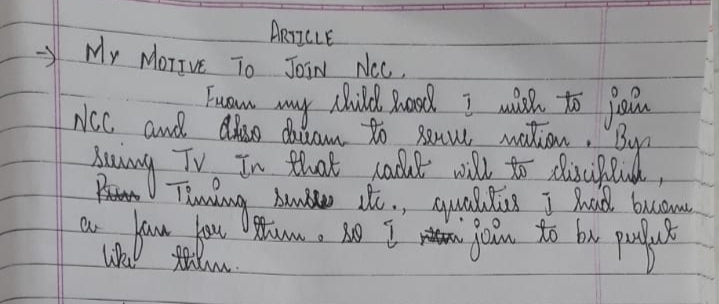 ARTICLE
→ MY MOTIVE TO JOIN NCC.
From my child hood I wish to join
NCC and also dream to serve nation. By
seeing TV In that cadet will to discipline,
Timing sense etc., qualities I had become
a fan for them. so I join to be perfect
like them.